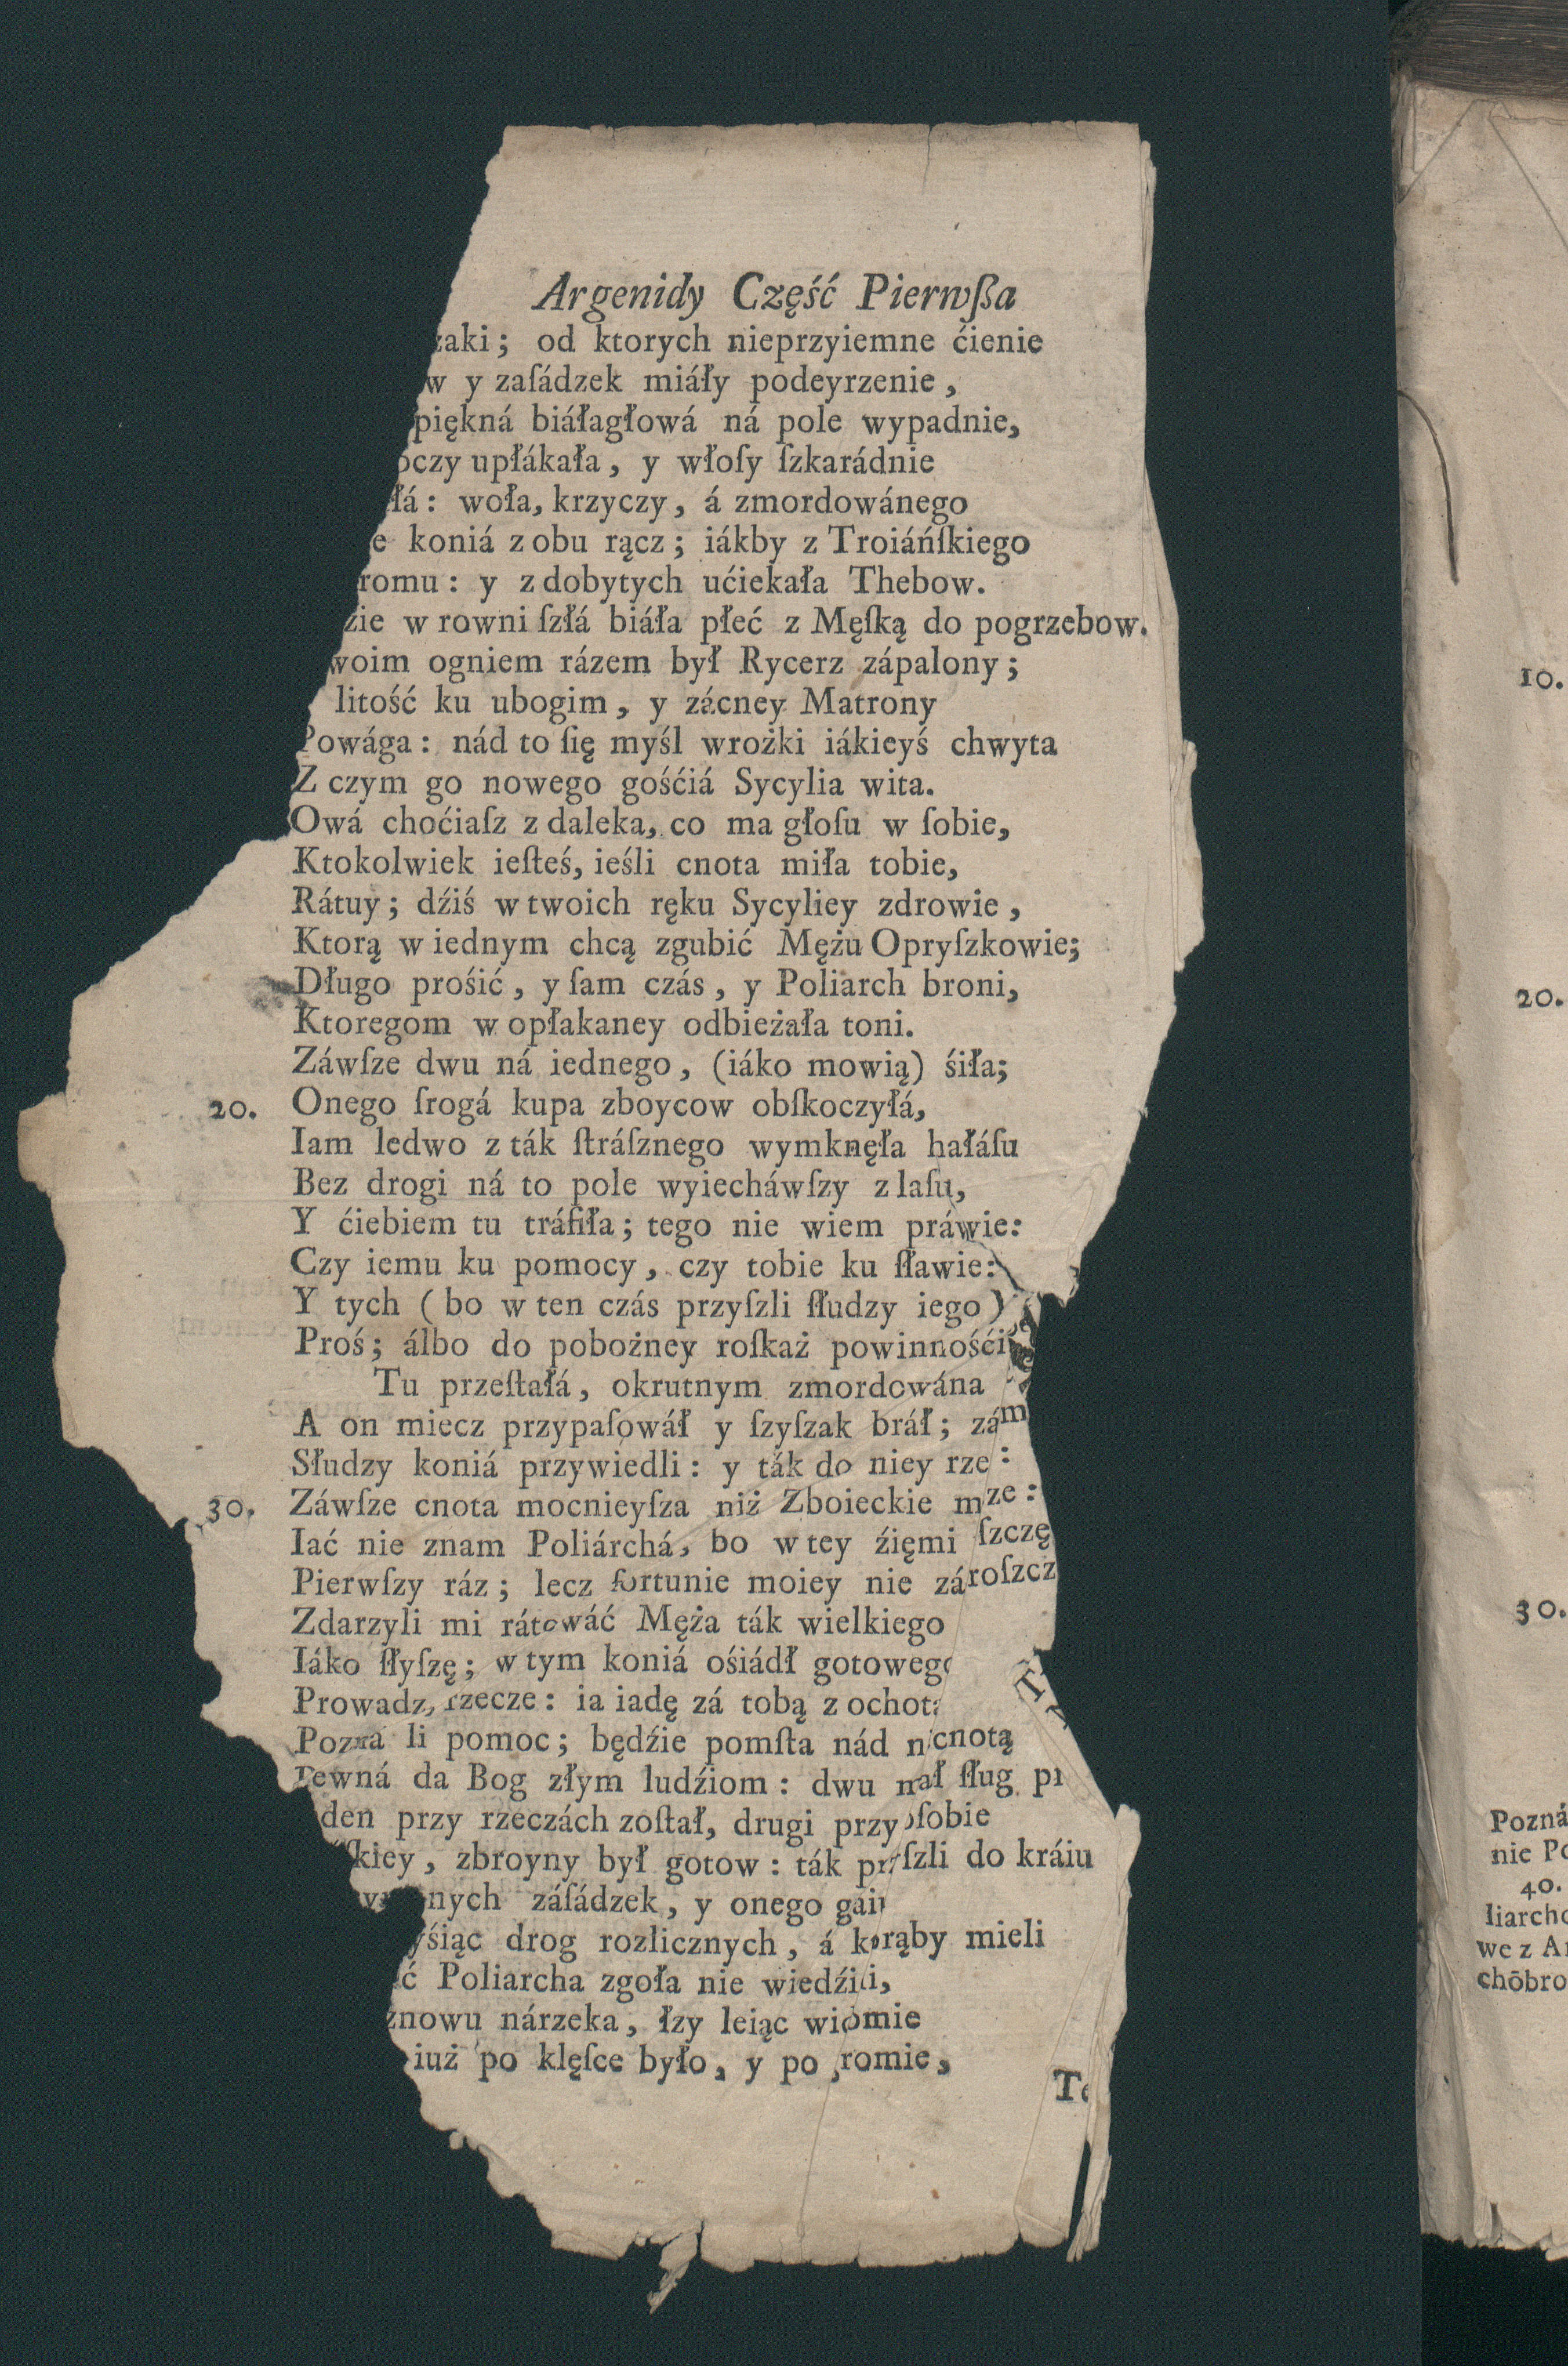 Argenidy Część Pierwſßa
zaki; od ktorych nieprzyiemne ćienie
w y zaſádzek miáły podeyrzenie,
piękná biáłagłowá ná pole wypadnie,
oczy upłákała, y włoſy ſzkarádnie
łá: woła, krzyczy, á zmordowánego
e koniá z obu rącz; iákby z Troiáńſkiego
romu: y z dobytych ućiekała Thebow.
zie w rowni ſzłá biáła płeć z Męſką do pogrzebow.
woim ogniem rázem był Rycerz zápalony;
litość ku ubogim, y zácney Matrony
Powága: nád to ſię myśl wrożki iákieyś chwyta
Z czym go nowego gośćiá Sycylia wita.
Owá choćiaſz z daleka, co ma głoſu w ſobie,
Ktokolwiek ieſteś, ieśli cnota miła tobie,
Rátuy; dźiś w twoich ręku Sycyliey zdrowie,
Ktorą w iednym chcą zgubić Mężu Opryſzkowie;
Długo prośić, y ſam czás, y Poliarch broni,
Ktoregom w opłakaney odbieżała toni.
Záwſze dwu ná iednego, (iáko mowią) śiła;
20. Onego ſrogá kupa zboycow obſkoczyłá,
Iam ledwo z ták ſtráſznego wymknęła hałáſu
Bez drogi ná to pole wyiecháwſzy z laſu,
Y ćiebiem tu tráfiła; tego nie wiem práwie:
Czy iemu ku pomocy, czy tobie ku ſławie:
Y tych (bo w ten czás przyſzli ſłudzy iego)
Proś; álbo do pobożney roſkaż powinnośći
Tu przeſtałá, okrutnym zmordowána
A on miecz przypaſowáł y ſzyſzak bráł; zám
Słudzy koniá przywiedli: y ták do niey rze :
30. Záwſze cnota mocnieyſza niż Zboieckie m ze:
Iać nie znam Poliárchá, bo w tey źięmi ſzczę
Pierwſzy ráz; lecz fortunie moiey nie zá roſzcz
Zdarzyli mi rátowáć Męża ták wielkiego
Iáko ſłyſzę; w tym koniá ośiádł gotowego
Prowadz, rzecze: ia iadę zá tobą z ochotą
Pozna li pomoc; będźie pomſta nád n cnotą
Pewná da Bog złym ludźiom: dwu m ał ſług pr
den przy rzeczách zoſtał, drugi przy ſobie
ſkiey, zbroyny był gotow: ták pr ſzli do kráiu
nych záſádzek, y onego gaiu
yśiąc drog rozlicznych, á k rąby mieli
ć Poliarcha zgoła nie wiedźieli,
znowu nárzeka, łzy leiąc widomie
iuż po klęſce było, y po romie,
Te
10.
20.
30.
Pozná
nie Po
40.
liarcho
we z Ar
chōbro